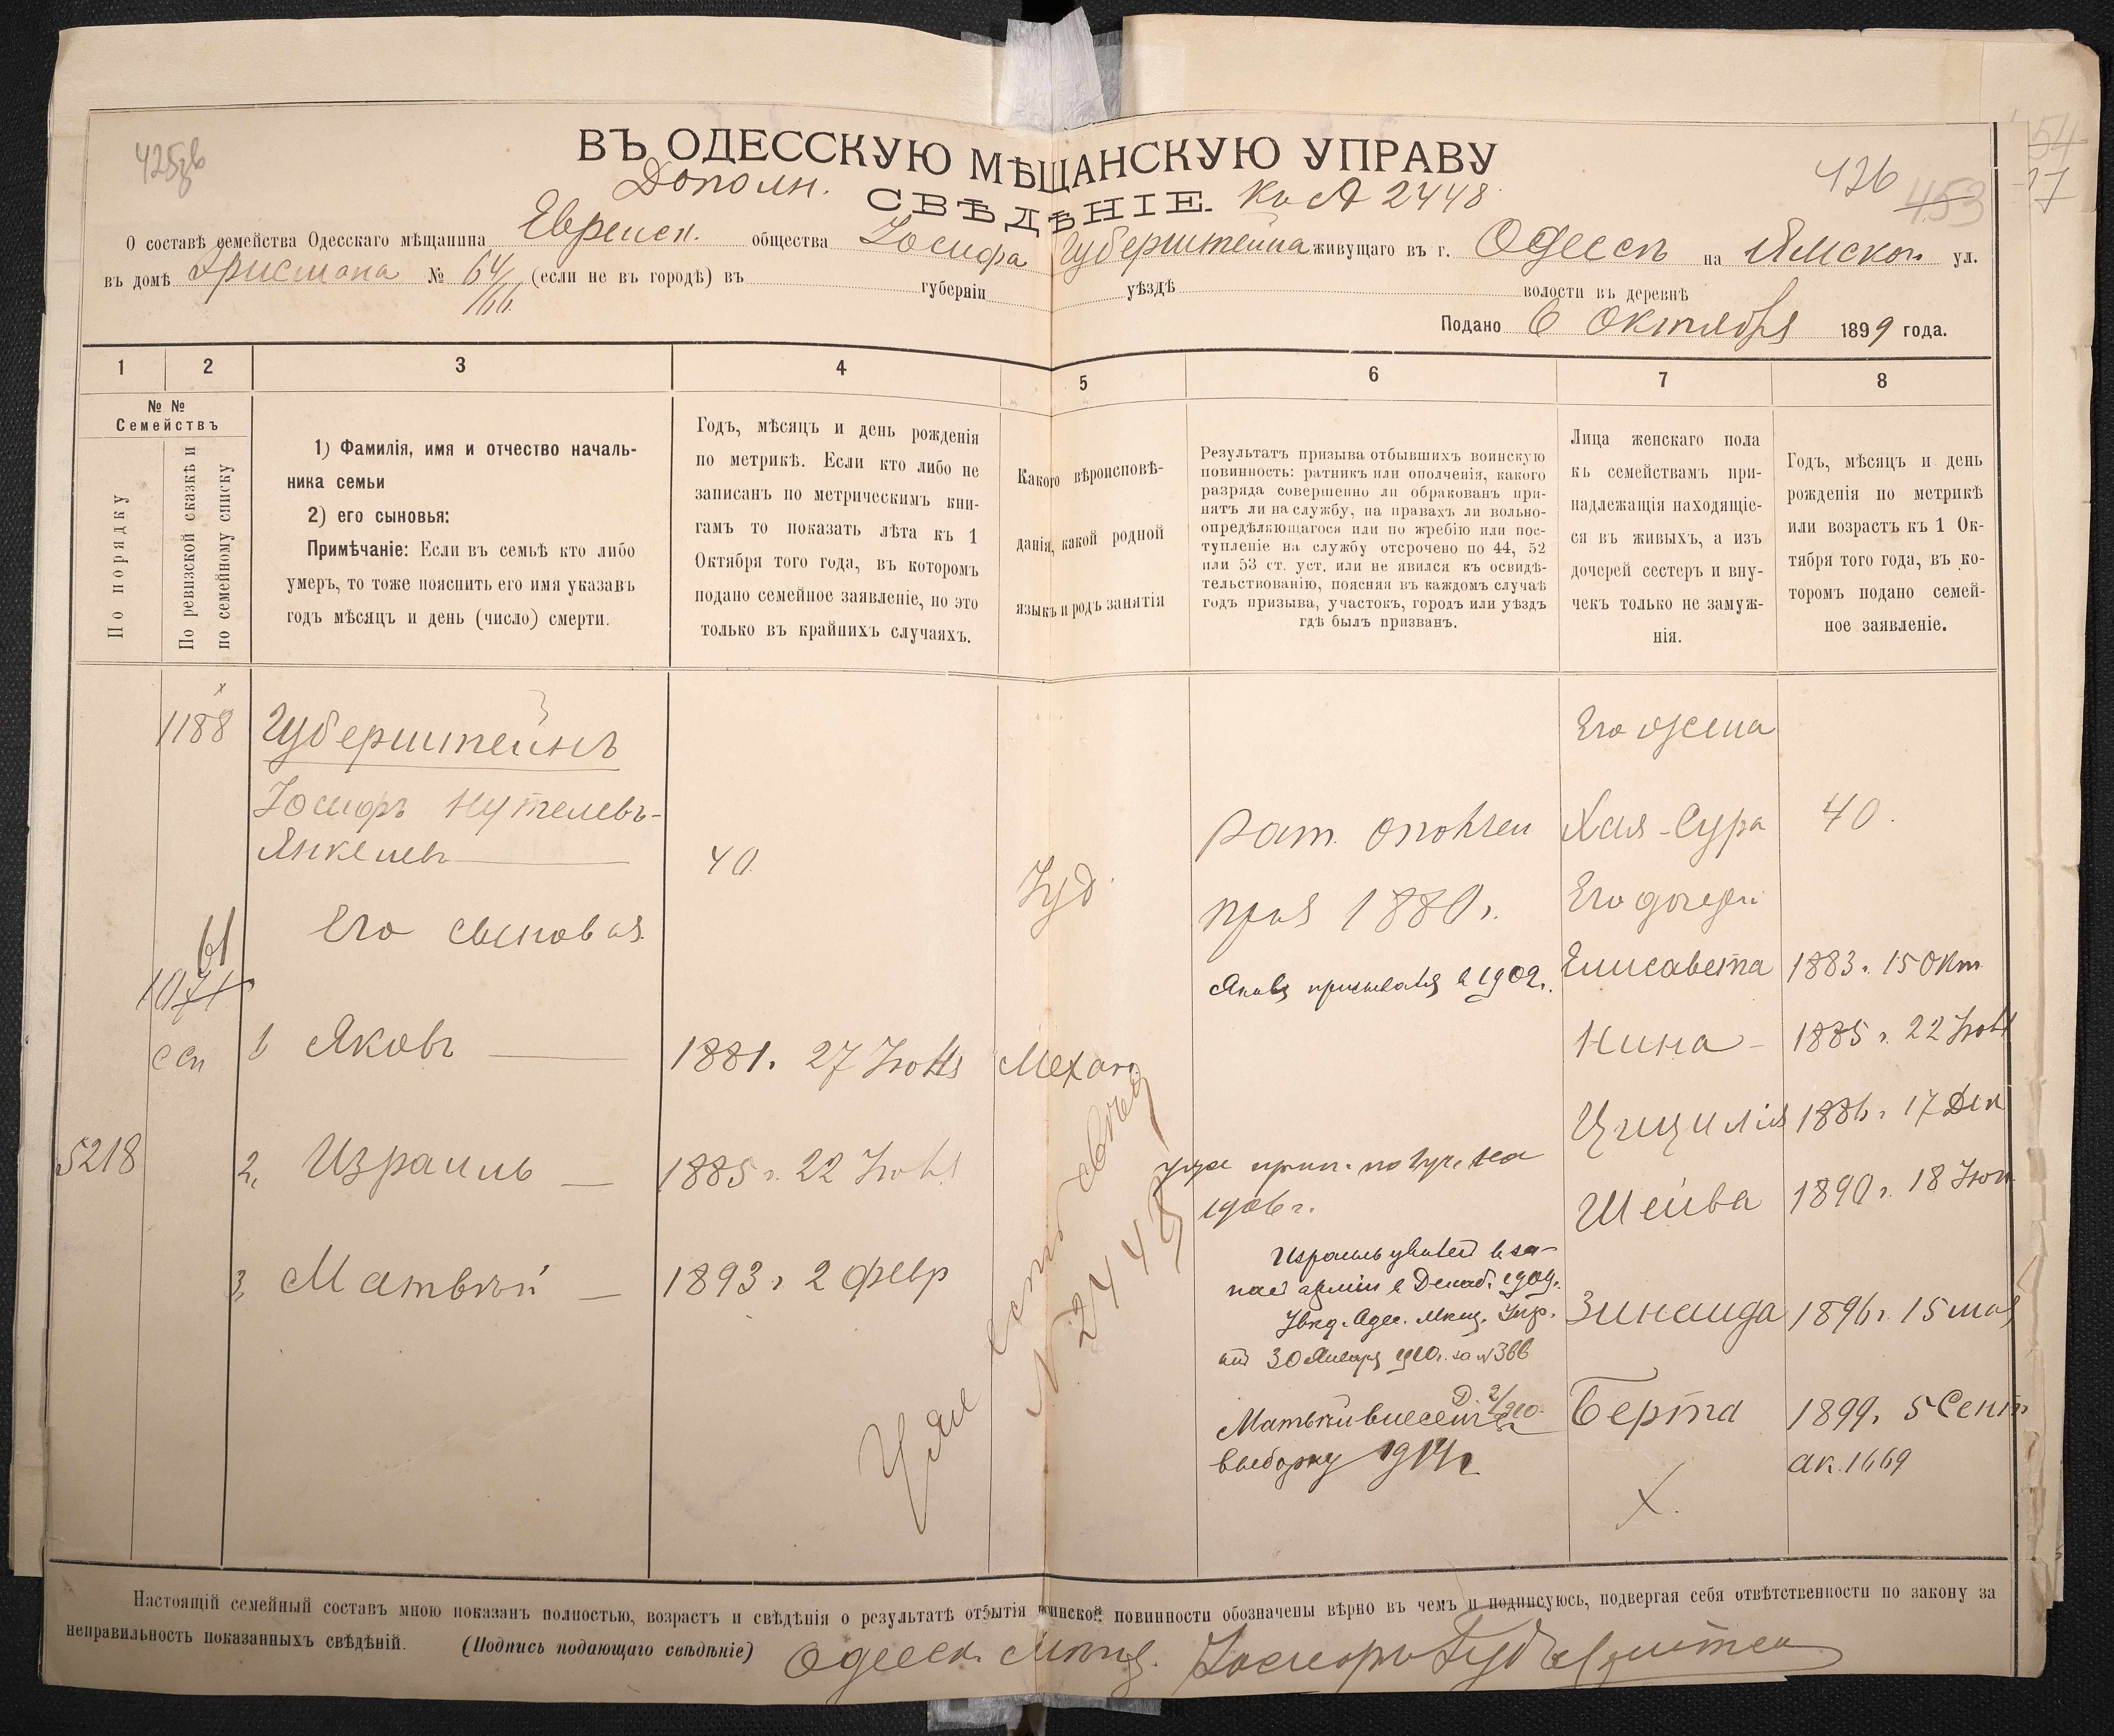 ВЪ ОДЕССКУЮ МѢЩАНСКУЮ УПРАВУ
Дополн. СВѢДѢНІЕ. къ № 2448
126 453
О составѣ семейства Одесскаго мѣщанина Еврейск. общества Іосифа Губерштейна живущаго въ г. Одессѣ на Ямской ул.
въ домѣ № 64/66 (если не въ городѣ) въ губерніи уѣздѣ волости въ деревнѣ
Подано 6 Октября 1899 года.
1 2 3 4 5 6 7 8
№ № Семействъ
По порядку
По ревизской сказкѣ и
по семейному списку
1) Фамилія, имя и отчество началь-
ника семьи
2) его сыновья:
Примѣчаніе: Если въ семьѣ кто либо
умеръ, то тоже пояснить его имя указавъ
годъ мѣсяцъ и день (число) смерти.
Годъ, мѣсяцъ и день рожденія
по метрикѣ. Если кто либо не
записанъ по метрическимъ кни-
гамъ то показать лѣта къ 1
Октября того года, въ которомъ
подано семейное заявленіе, но это
только въ крайнихъ случаяхъ.
Какого вѣроисповѣ-
данія, какой родной
языкъ и родъ занятія
Результатъ призыва отбывшихъ воинскую
повинность: ратникъ или ополченія, какого
разряда совершенно ли обракованъ при-
нятъ ли на службу, на правахъ ли вольно-
опредѣляющагося или по жребію или пос-
тупленіе на службу отсрочено по 44, 52
или 53 ст. уст. или не явился къ освидѣ-
тельствованію, поясняя въ каждомъ случаѣ
годъ призыва, участокъ, городъ или уѣздъ
гдѣ былъ призванъ.
Лица женскаго пола
къ семействамъ при-
надлежащія находящіе-
ся въ живыхъ, а изъ
дочерей сестеръ и вну-
чекъ только не замуж-
нія.
Годъ, мѣсяцъ и день
рожденія по метрикѣ
или возрастъ къ 1 Ок-
тября того года, въ ко-
торомъ подано семей-
ное заявленіе.
1188 Губерштейнъ Его жена
Іосифъ Нутелевъ- рат. ополчен Хая-Сура 40.
Янкелевъ 40 Іуд.
Его сыновья. приз 1880г. Его дочери
61
1071 Яковъ призывался в 1902г. Елисавета 1883г. 15 Окт
с сп 1 Яковъ 1881г. 27 Іюня Механ Нина 1885г. 22 Іюня
Цицилія 1886г. 17 Дек
5218 2, Израиль 1885г. 22 Іюня
1906г. Шейва 1890г. 18 Іюн
Израиль уволен в за-
3, Матвѣй 1893г. 2 февр пас арміи в Декаб. 1909г.
Увѣд. Одес. Мѣщ. Упр. Зинаида 1896г. 15 мая
от 30 Января 1910г. за № 366
Д. 2/1910.
Матвѣй внесен в Берта 1899г. 5 Сент
выборку 1914г. ак. 1669
№ 2448
Настоящій семейный составъ мною показанъ полностью, возрастъ и свѣдѣнія о результатѣ отбытія воинской повинности обозначены вѣрно въ чемъ и подписуюсь, подвергая себя отвѣтственности по закону за
неправильность показанныхъ свѣдѣній. (Подпись подающаго свѣдѣніе) Одесск. Мѣщ. Іосифъ Губерштейн